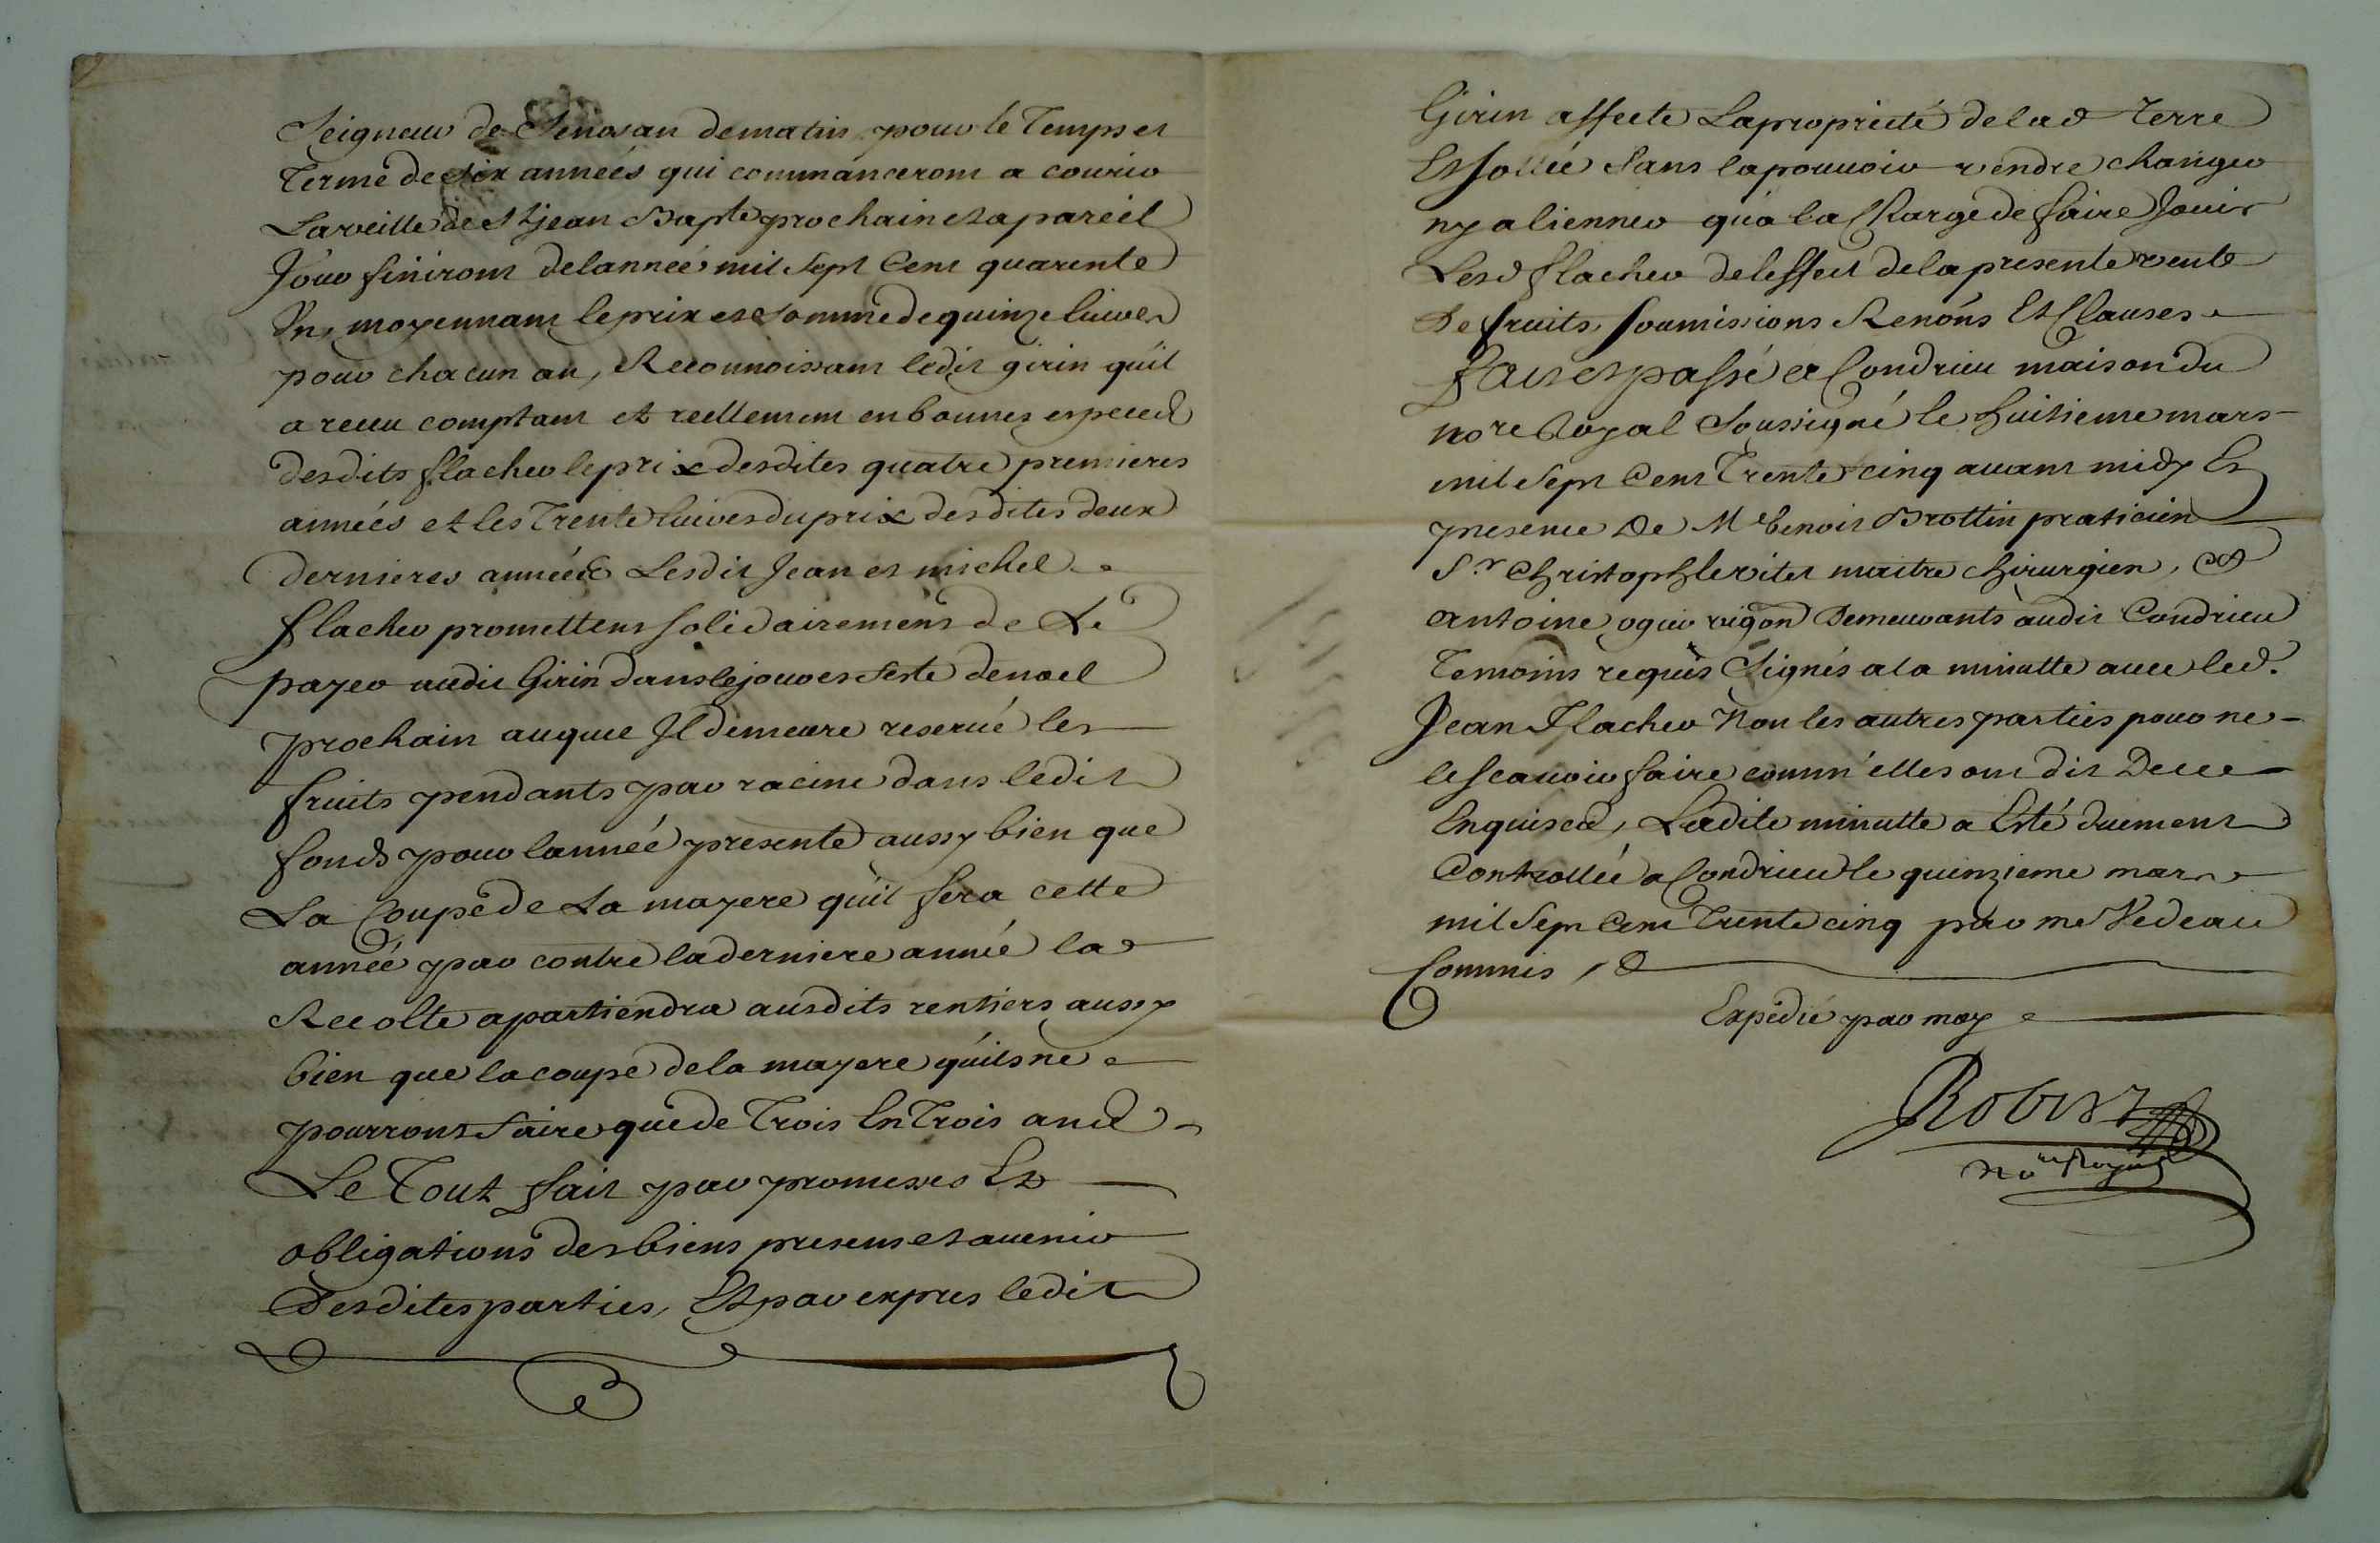 Seigneur de Senosan dematin pour le Temps et
Terme de six années qui commanceront a courir
La veille de St jean Bapte prochain et a pareil
Jour finiront de lannée mil sept Cent quarente
Un, moyennant le prix et somme de quinze livres
pour chacun an, Reconnoissant ledit girin quil
a receu comptant et reellement en bonnes especes
desdits flacher le prix desdites quatre premieres
années et les Trente livres du prix desdites deux
dernieres années Lesdit Jean et michel
flacher promettent solidairement de Le
payer audit Girin dans le jour et feste de noel
prochain auquel Il demeure reservé les
fruits pendants par racine dans ledit
fonds pour lannée presente aussy bien que
La Coupe de La mayere quil fera cette
année par contre la derniere année la
Recolte apartiendra ausdits rentiers aussy
bien que la coupe de la mayere quils ne
pourront faire que de Trois En Trois ans
Le Tout fait par promesses Et
obligations des biens presens et avenir
Desdites parties, Et par expres ledit
Girin affecte La proprieté de lad Terre
Et sans la pouvoir vendre changer
ny alienner qua la Charge de faire Jouir
Lesd flacher de leffect de la presente vente
De fruits, soumissions Renons Et Clauses
fait et passé a Condrieu maison du
nore Royal Soussigné le huitieme mars
mil Sept Cent Trente cinq avant midy En
presence De Me benoit Brottin praticien
Sr Christophle vitet maitre chirurgien, et
antoine ogier vigon Demeurants audit Condrieu
Temoins requis Signés a la minutte avec led.
Jean Flacher Non les autres parties pour ne
le scavoir faire comm'elles ont dit De ce
Enquises, Ladite minutte a Esté duement
Controllée a Condrieu le quinzieme mars
mil Sept Cent Trente cinq par me Vedeau
Commis,
Expedié par moy
Robert
nore Royal